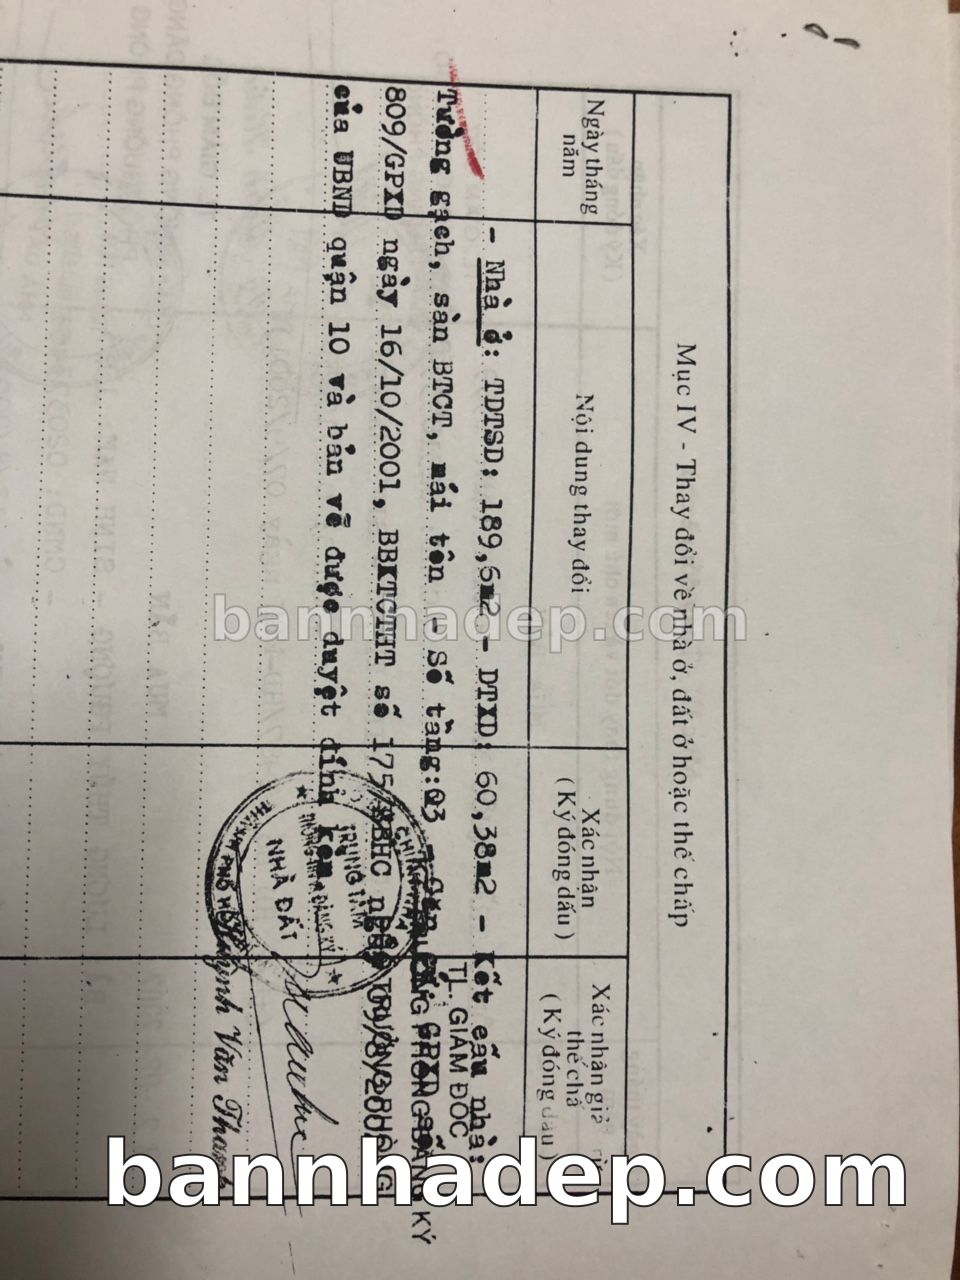 Mục IV - Thay đổi về nhà ở, đất ở hoặc thế chấp
Ngày tháng năm
Nội dung thay đổi
Xác nhận
( Ký đóng dấu )
Xác nhận giải
thế chấ
( Ký đóng dấu )
- Nhà ở: TDTSD: 189,6m2 - DTXD: 60,38m2 - Kết cấu nhà:
Tường gạch, sàn BTCT, mái tôn - Số tầng:03 GPXD số
809/GPXD ngày 16/10/2001, BBKTCTHT số 175/BBHC ngày
của UBND quận 10 và bản vẽ được duyệt đính kèm
TL. GIÁM ĐỐC
TRƯỞNG PHÒNG ĐĂNG KÝ
TRƯỞNG PHÒNG
TRUNG TÂM
THÔNG TIN & ĐĂNG KÝ
NHÀ ĐẤT
Huỳnh Văn Thanh
bannhadep.com
bannhadep.com